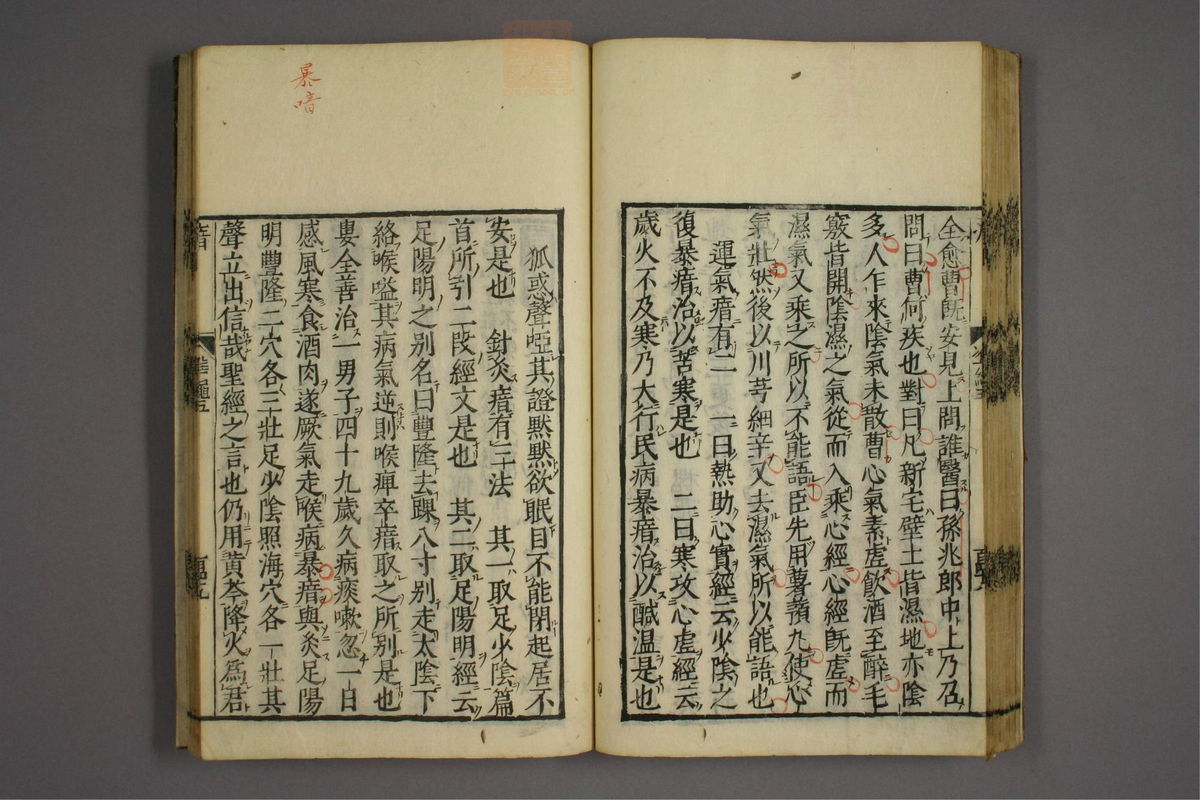 全愈曹既安見上問誰醫曰孫兆郎中上乃召
問曰曹何疾也對曰凡新宅壁土皆濕地亦陰
多人乍來陰氣未散曹心氣素虛飲酒至醉毛
竅皆開陰濕之氣從而入乘心經心經既虛而
濕氣又乘之所以不能語臣先用薯蕷丸使心
氣壯然後以川芎細辛又去濕氣所以能語也
運氣瘖有二 一曰熱助心實經云少陰之
復暴瘖治以苦寒是也 二曰寒攻心虛經云
歲火不及寒乃大行民病暴瘖治以鹹溫是也
暴喑
狐惑聲啞其證默默欲眠目不能閉起居不
安是也 針灸瘖有三法 其一取足少陰篇
首所引二段經文是也 其二取足陽明經云
足陽明之别名曰豐隆去踝八寸别走太陰下
絡喉嗌其病氣逆則喉痺卒瘖取之所别是也
婁全善治一男子四十九歲久病痰嗽忽一日
感風寒食酒肉遂厥氣走喉病暴瘖與灸足陽
明豐隆二穴各三壯足少陰照海穴各一壯其
聲立出信哉聖經之言也仍用黃芩降火爲君
瘖
準繩五